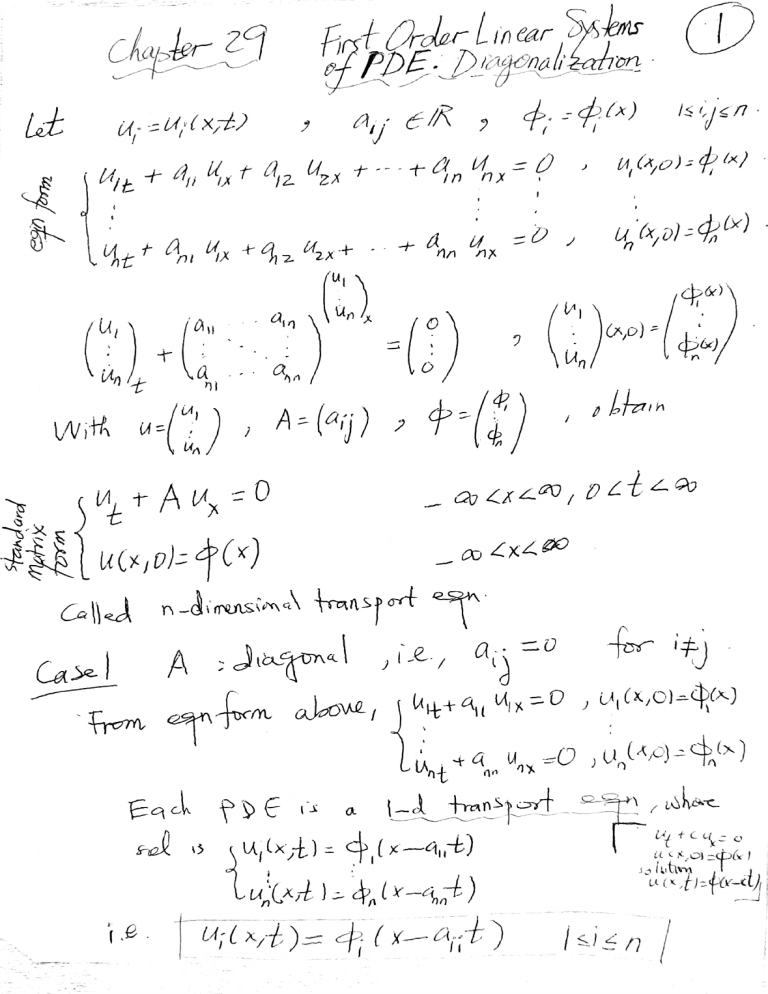 Chapter 29 First Order Linear Systems of PDE. Diagonalization. ①
Let u_i = u_i(x,t) , a_ij ∈ ℝ , ϕ_i = ϕ_i(x) 1≤i,j≤n.
eqn form { u_1t + a_11 u_1x + a_12 u_2x + ··· + a_1n u_nx = 0 , u_1(x,0) = ϕ_1(x)
⋮ ⋮ ⋮ ⋮
u_nt + a_n1 u_1x + a_n2 u_2x + ·· + a_nn u_nx = 0 , u_n(x,0) = ϕ_n(x).
(u_1 ⋮ u_n)_t + (a_11 ··· a_1n ⋮ ⋱ ⋮ a_n1 ··· a_nn) (u_1 ⋮ u_n)_x = (0 ⋮ 0) , (u_1 ⋮ u_n)(x,0) = (ϕ_1(x) ⋮ ϕ_n(x))
With u = (u_1 ⋮ u_n) , A = (a_ij) , ϕ = (ϕ_1 ⋮ ϕ_n) , obtain
standard matrix form { u_t + A u_x = 0 −∞<x<∞, 0<t<∞
u(x,0) = ϕ(x) −∞<x<∞
Called n-dimensional transport eqn.
Case 1 A : diagonal , i.e., a_ij = 0 for i≠j.
From eqn form above, { u_1t + a_11 u_1x = 0 , u_1(x,0) = ϕ_1(x)
⋮ ⋮
u_nt + a_nn u_nx = 0 , u_n(x,0) = ϕ_n(x)
Each PDE is a 1-d transport eqn, whose
sol is { u_1(x,t) = ϕ_1(x−a_11 t)
⋮
u_n(x,t) = ϕ_n(x−a_nn t)
u_t + c u_x = 0
u(x,0) = ϕ(x)
solution
u(x,t) = ϕ(x−ct)
i.e. u_i(x,t) = ϕ_i(x−a_ii t) 1≤i≤n